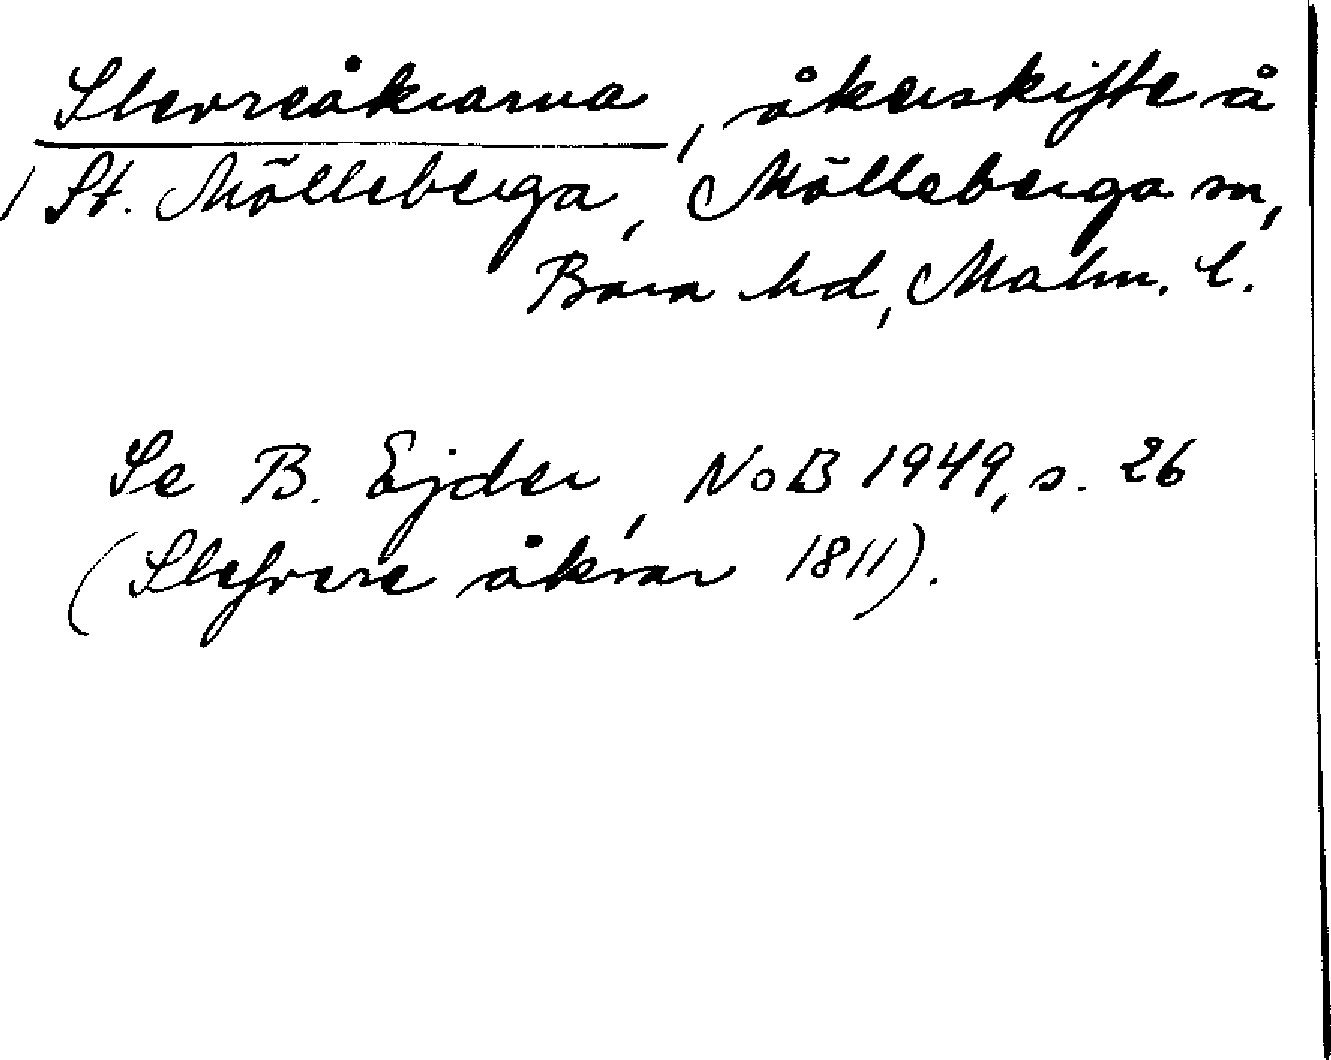 Slevreåkrarna, åkerskifte å
St. Mölleberga, Mölleberga sn,
Bara hd, Malm. l.
Se B. Ejder, NoB 1949, s. 26
(Slefvere åkrar 1811).